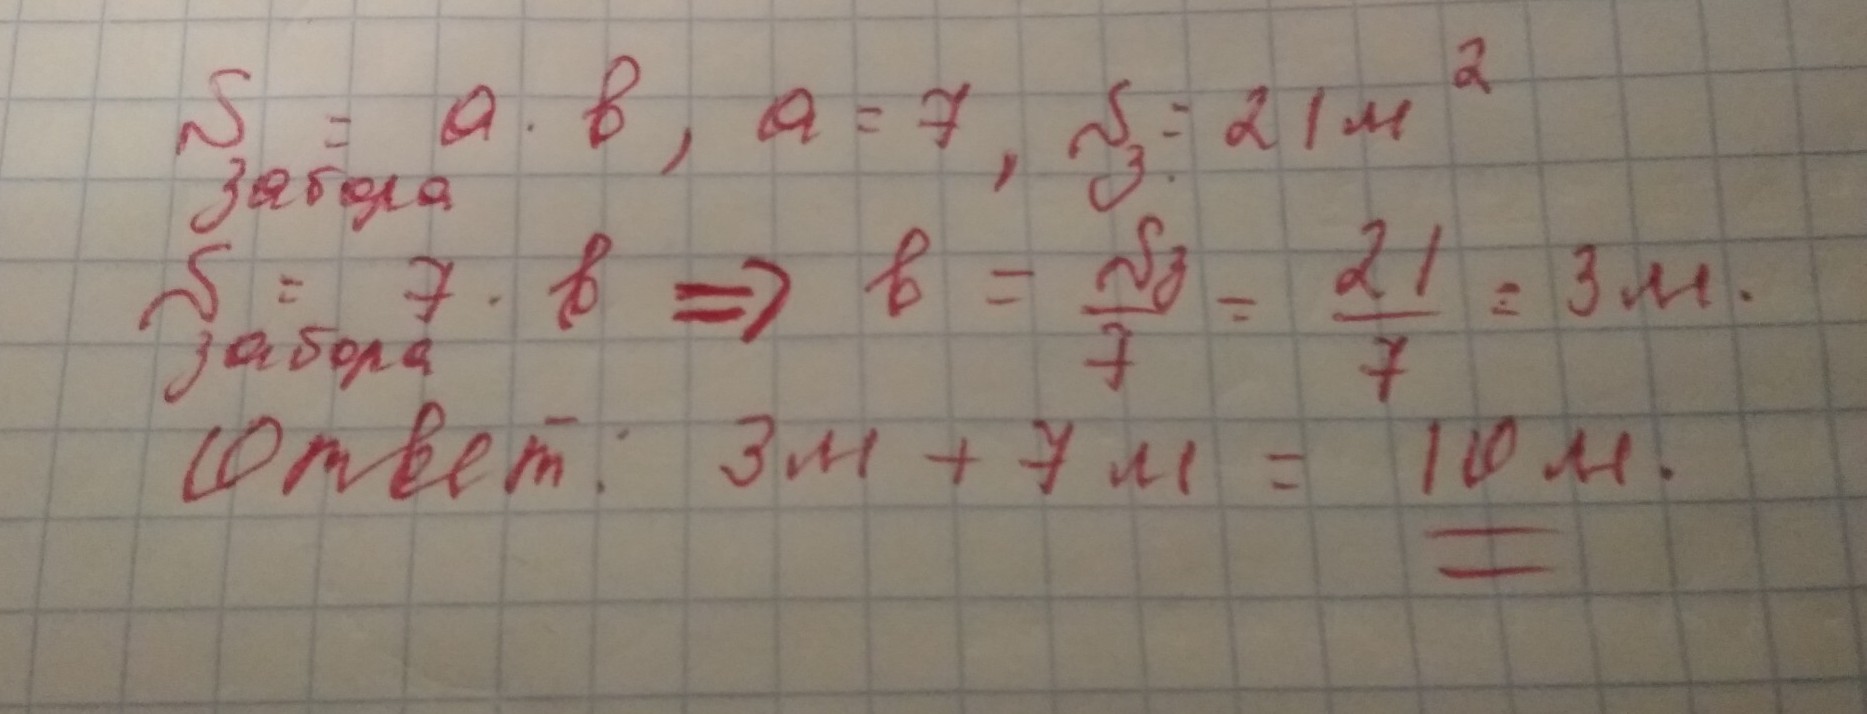 S забора = а · в, а = 7, S з. = 21 м²
S забора = 7 · в ⇒ в = Sз/7 = 21/7 = 3 м.
Ответ: 3м + 7м = 10 м.